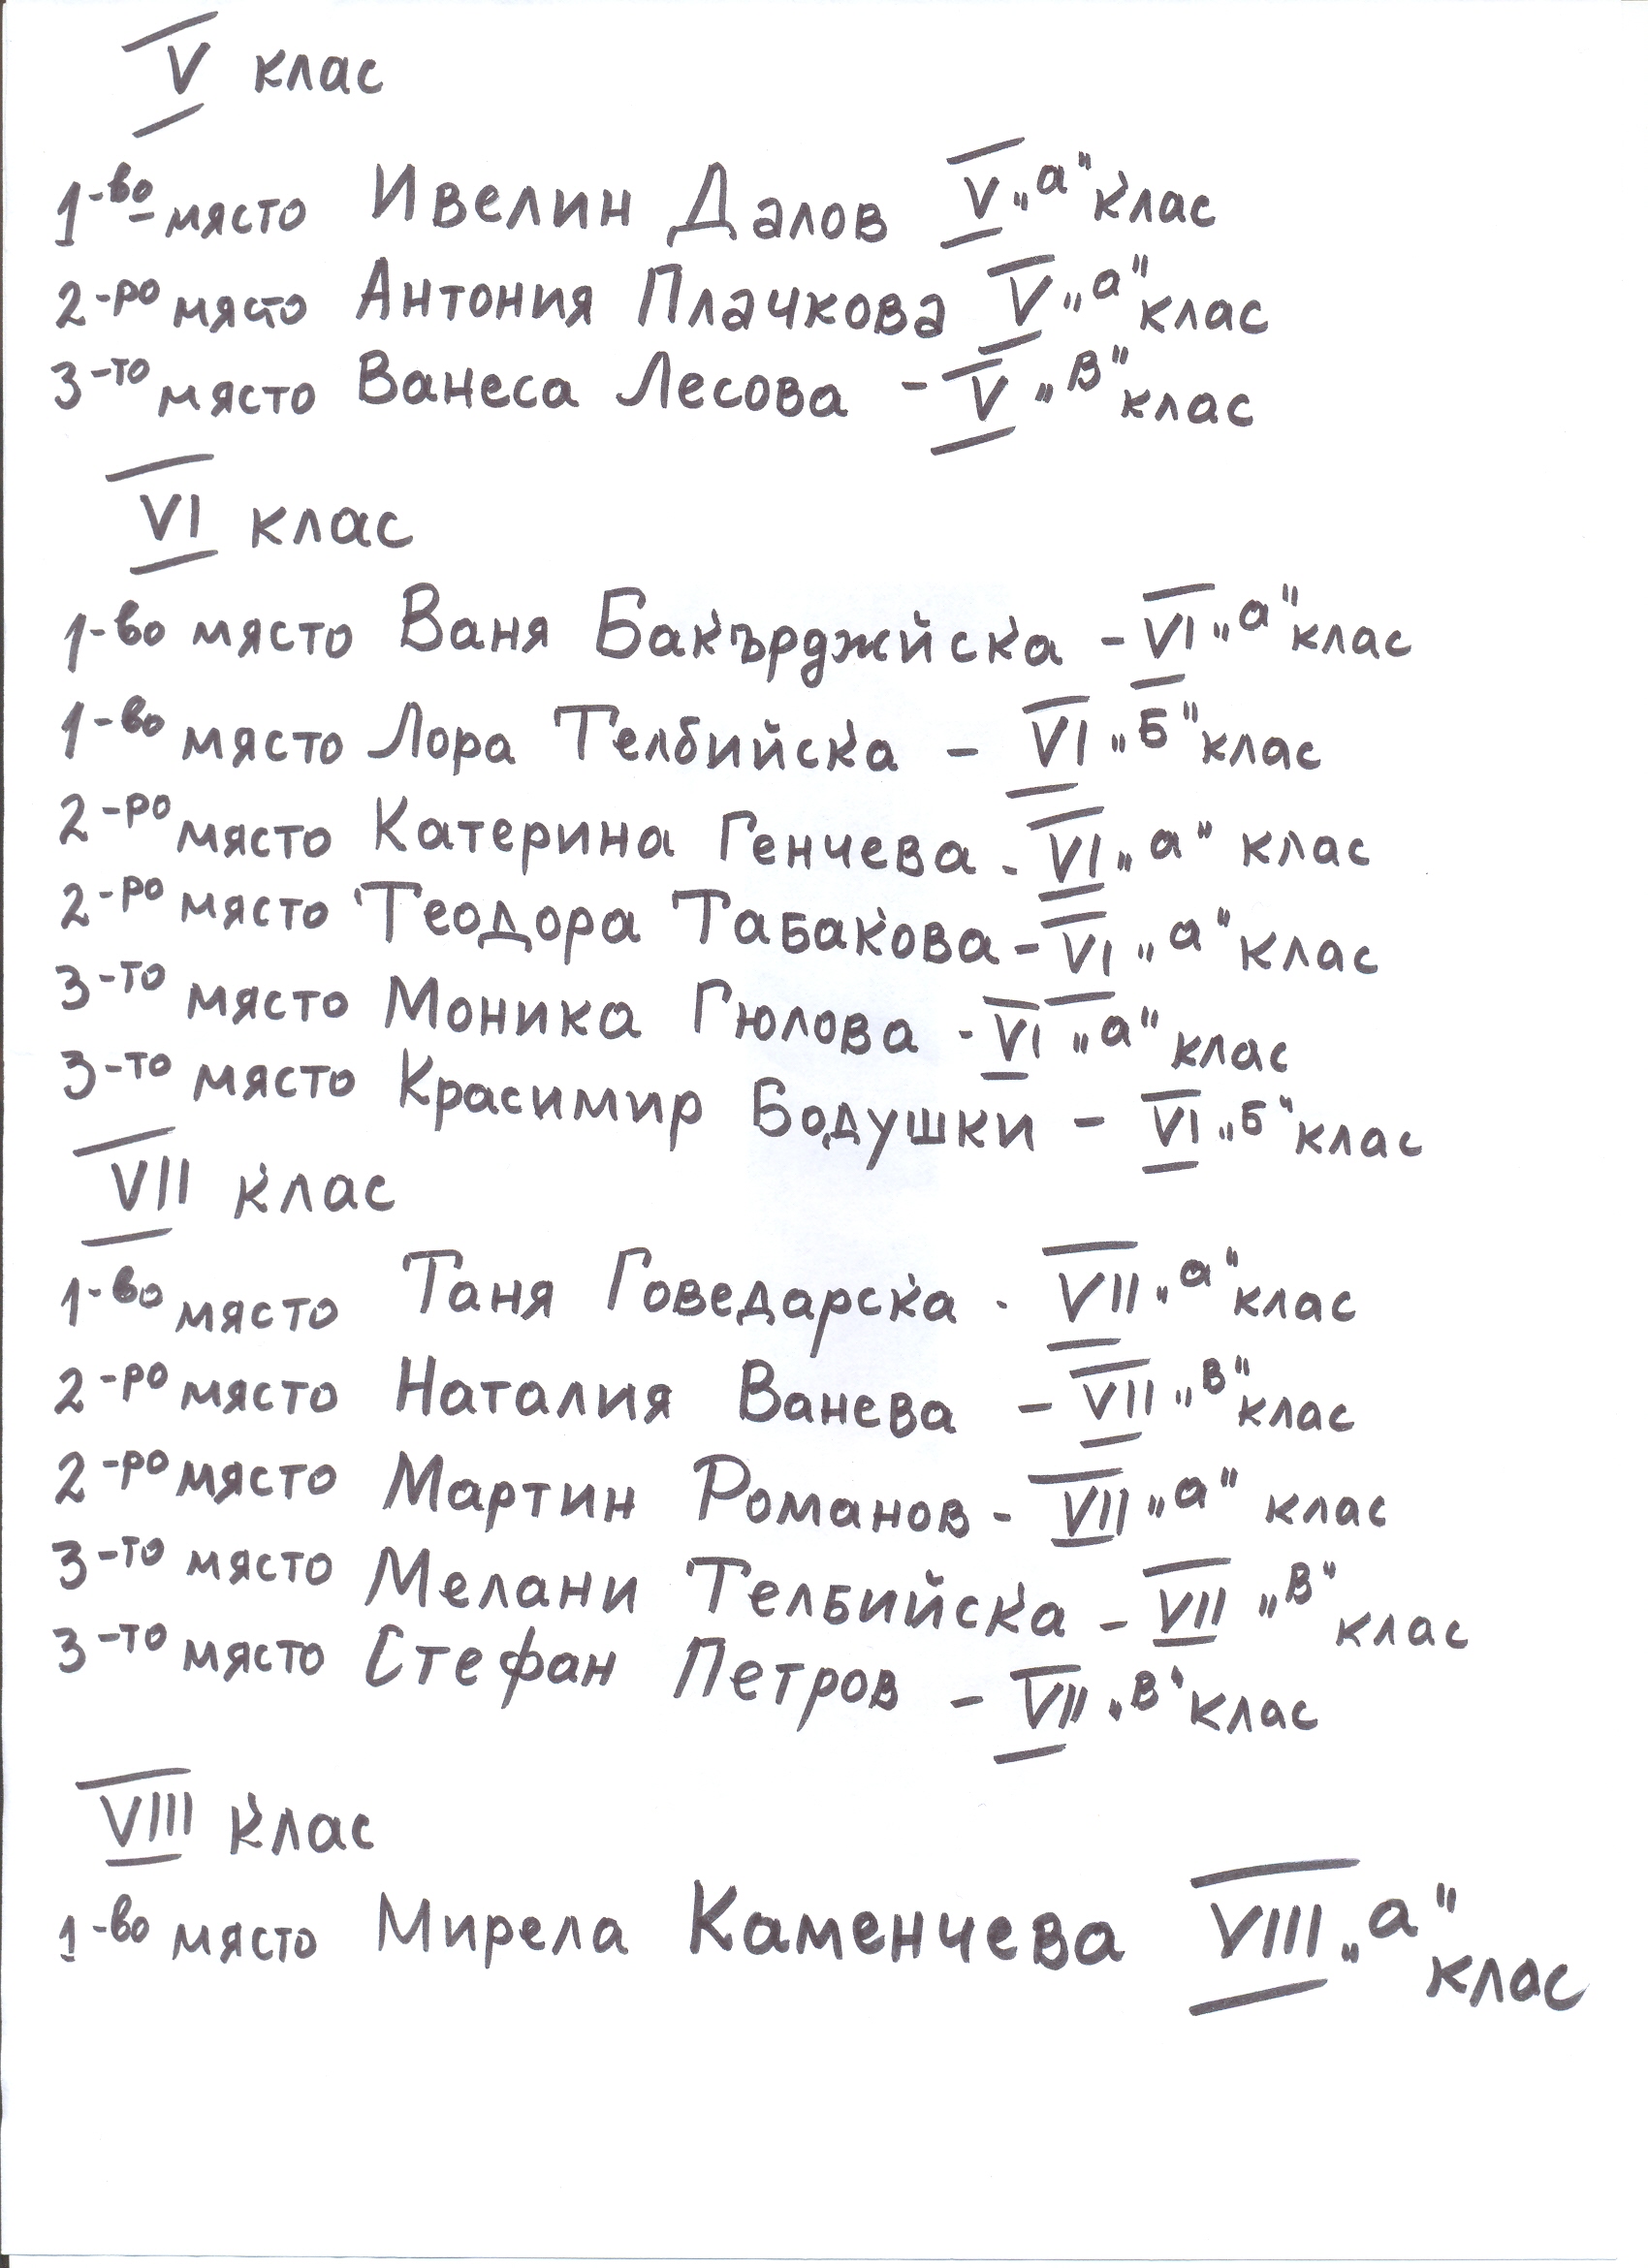 V клас
1-во място Ивелин Далов V „а" клас
2-ро място Антония Плачкова V „а" клас
3-то място Ванеса Лесова - V „В" клас
VI клас
1-во място Ваня Бакърджйска - VI „а" клас
1-во място Лора Телбийска - VI „Б" клас
2-ро място Катерина Генчева - VI „а" клас
2-ро място Теодора Табакова - VI „а" клас
3-то място Моника Гюлова - VI „а" клас
3-то място Красимир Бодушки - VI „Б" клас
VII клас
1-во място Таня Говедарска - VII „а" клас
2-ро място Наталия Ванева - VII „В" клас
2-ро място Мартин Романов - VII „а" клас
3-то място Мелани Телбийска - VII „В" клас
3-то място Стефан Петров - VII „В" клас
VIII клас
1-во място Мирела Каменчева VIII „а"
клас